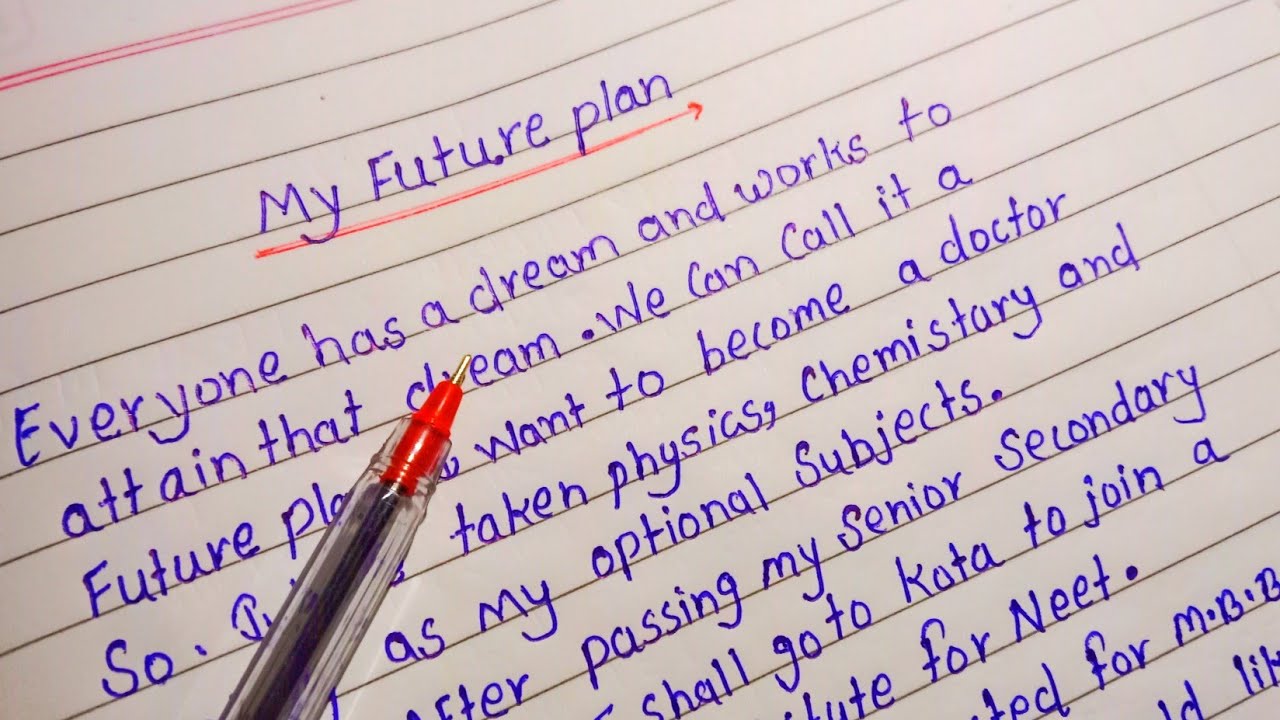 My Future plan
Everyone has a dream and works to
attain that dream. We Can Call it a
Future want to become a doctor
So. taken physics, Chemistary and
as my optional Subjects.
After passing my Senior Secondary
shall go to Kota to join a
for Neet.
for M.B.B